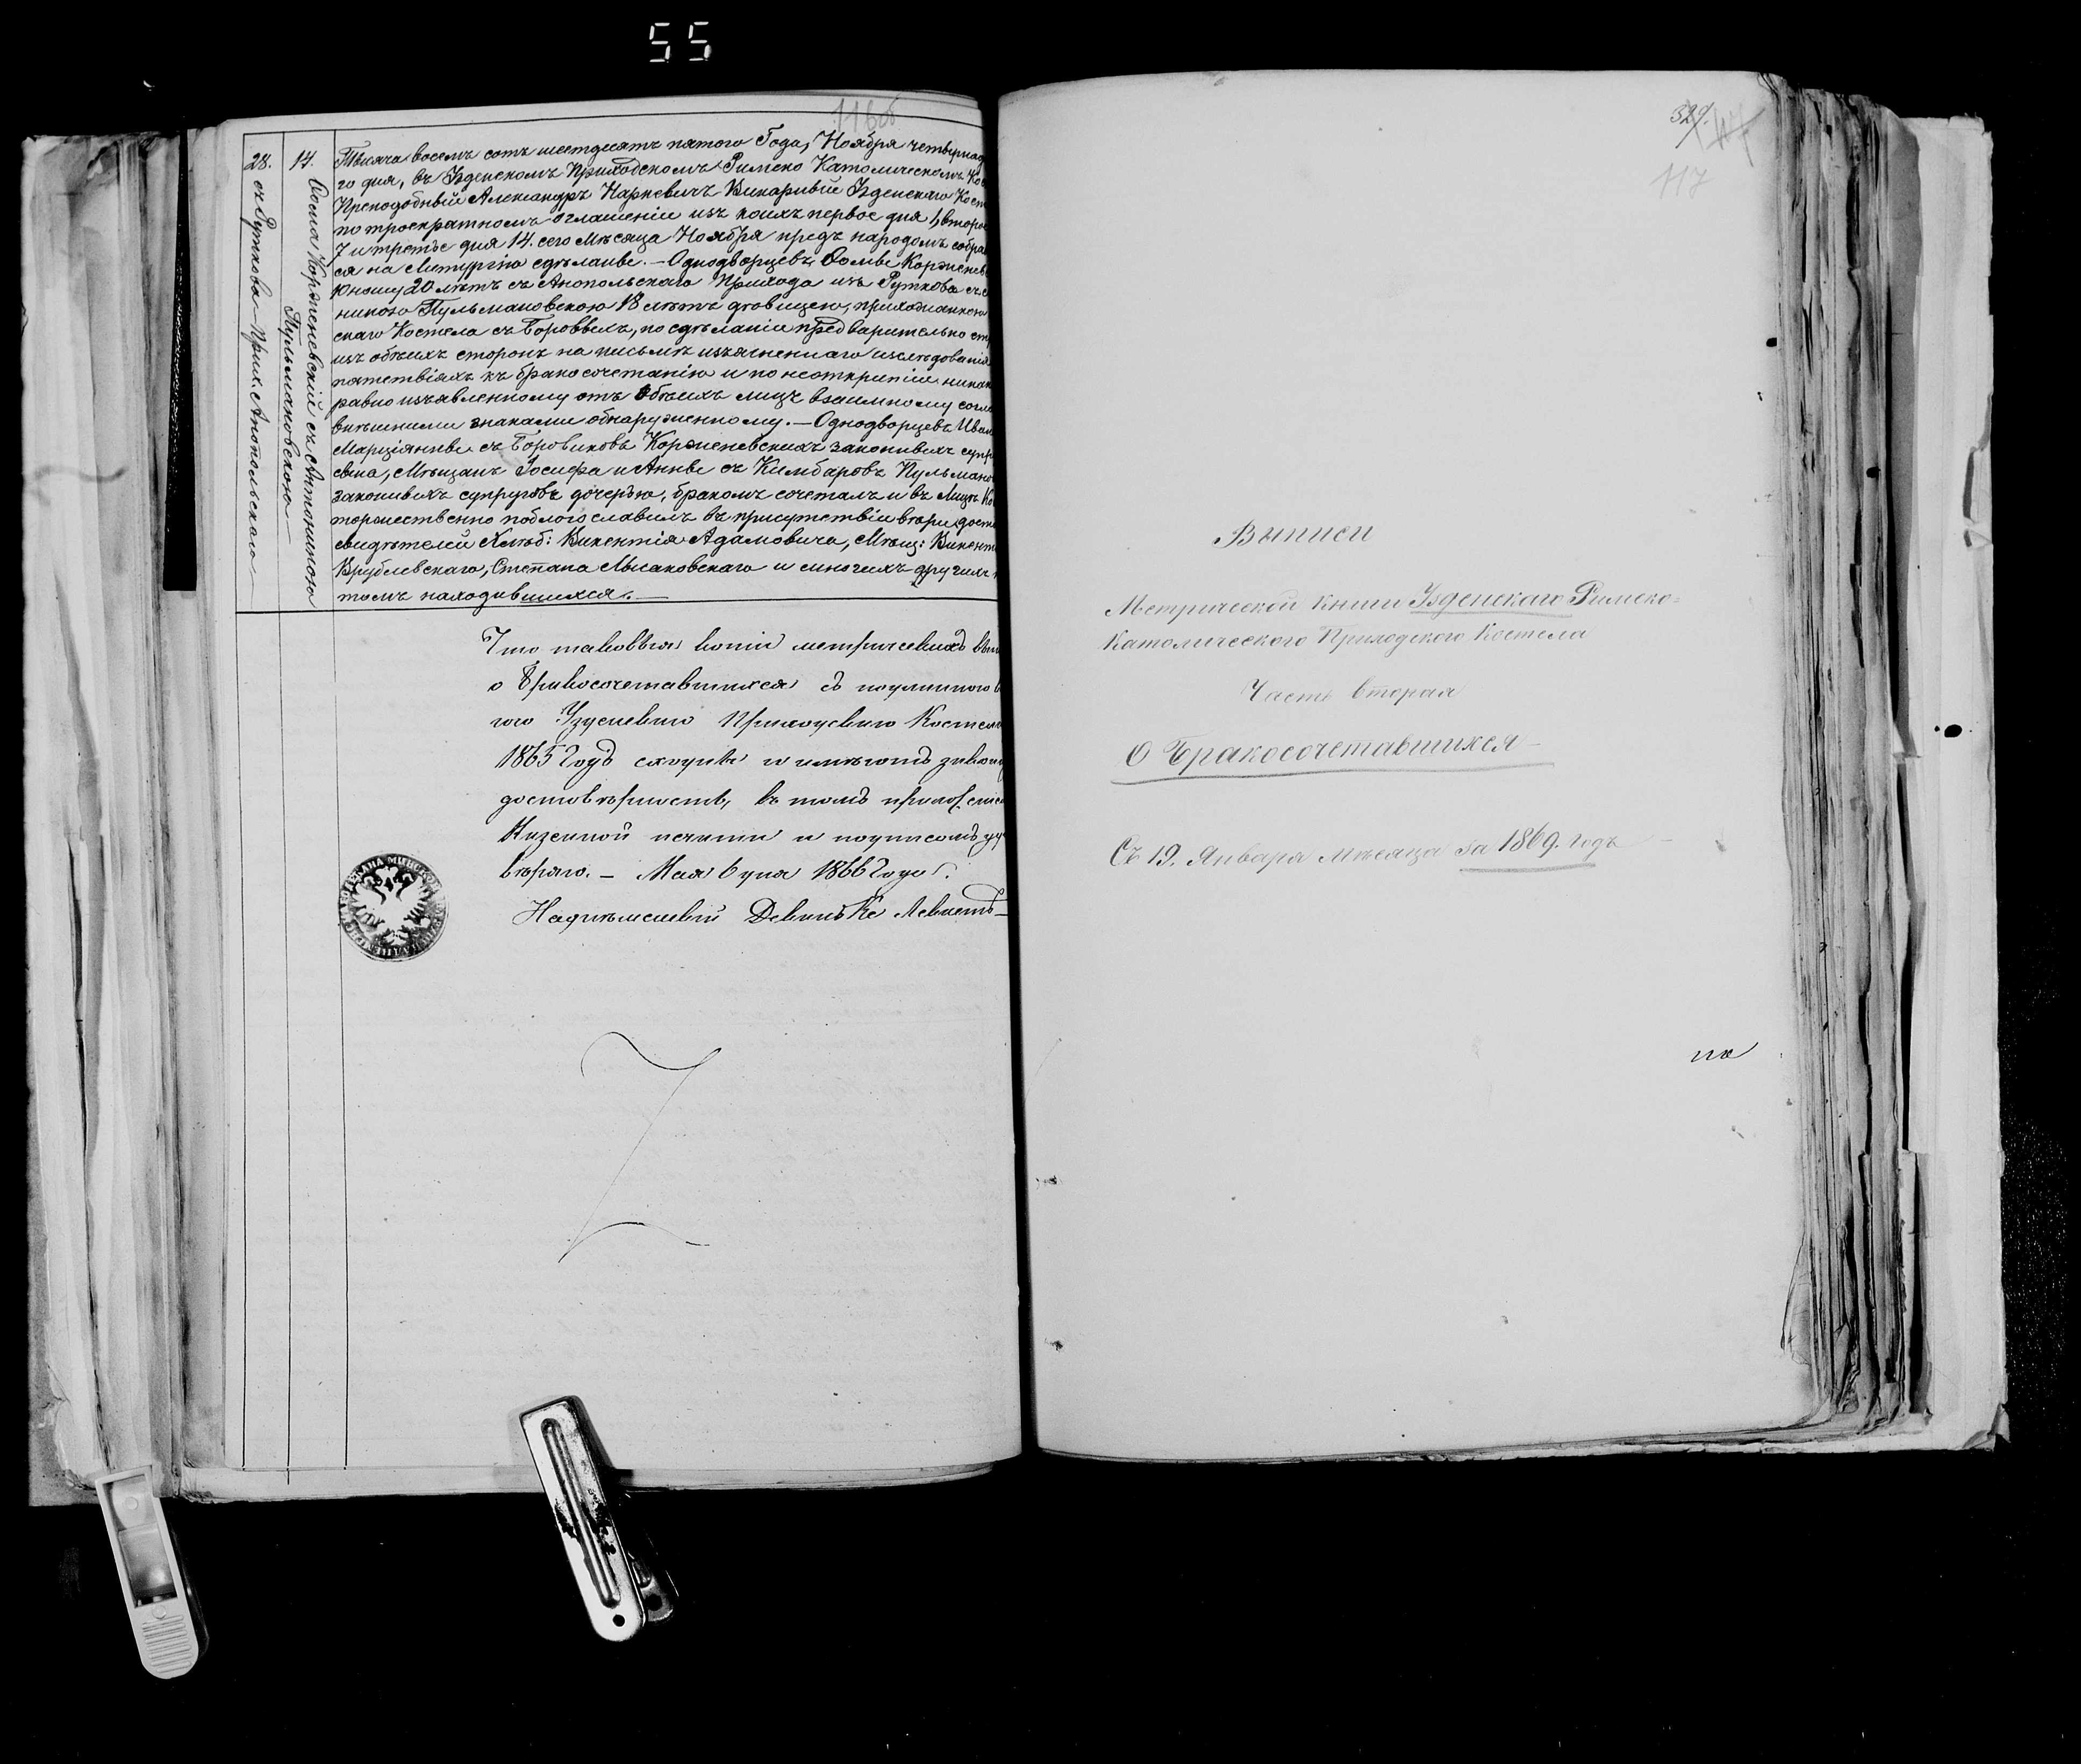 55
116об
28.
14.
съ Руткова — Прих. Анопольскаго
Фома Корженевскій съ Антониною
Пульмановскою —
Тысяча восемь сотъ шестдесятъ пятого Года, Ноября четвернад
го дня, въ Узденскомъ Приходскомъ Римско Католическомъ Кос
Преподобный Александръ Наркевичъ Викарный Узденскаго Кост
по троекратномъ оглашеніи изъ коихъ первое дня 1, второе
7 и третье дня 14. сего Мѣсяца Ноября предъ народомъ собра
ся на Литургію сдѣланные. — Однодворцевъ Фомы Корженев
Юношу 20 лѣтъ съ Анопольскаго Прихода изъ Руткова съ
ниною Пульмановскою 18 лѣтъ дѣвицею, прихожанкою
скаго Костела съ Боровыхъ, по сдѣланіи предварительно ст
изъ обѣихъ сторонъ на письмѣ изъясненнаго изслѣдованія
пятствіяхъ къ бракосочетанію и по неоткрытіи никак
равно изъявленному отъ Обѣихъ лицъ взаимному согла
внѣшними знаками обнаруженному. — Однодворцевъ Иван
Марціянны съ Боровиковъ Корженевскихъ законныхъ супр
сына, Мѣщанъ Іосифа и Анны съ Кимбаровъ Пульмано
законныхъ супруговъ дочерью, бракомъ сочеталъ и въ Лицѣ Ко
торжественно поблагословилъ въ присутствіи вѣри дост
свидѣтелей Хлѣб: Викентія Адамовича, Мѣщ: Викент
Врублевскаго, Степана Лысаковскаго и многихъ другихъ
томъ находившихся. —
Что таковыя копіи метрическихъ вып
о Бракосочетавшихся съ подлиннаго
того Узденскаго Приходскаго Костела
1865 Годъ сходны и имѣютъ закон
достовѣрность, въ томъ приложеніе
Казенной печати и подписомъ
вѣряю. — Мая 6 дня 1866 Года.
329.
117
Выписи
Метрической книги Узденскаго Римско-
Католического Приходского Костела
Часть вторая
О Бракосочетавшихся —
Съ 19. Января мѣсяца за 1869. годъ —